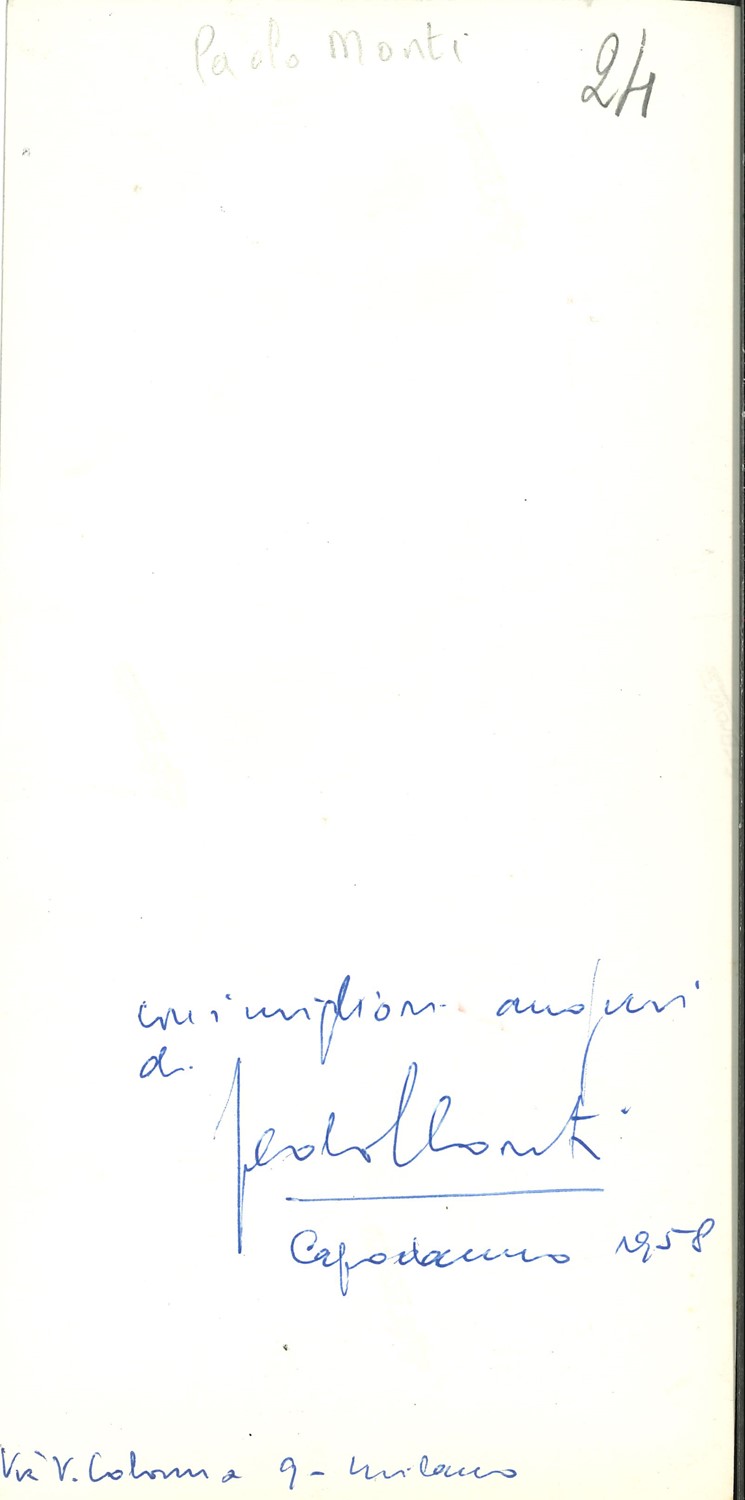 Paolo Monti
24
con i migliori auguri
di
Paolo Monti
Capodanno 1958
Via V. Colonna 9 - Milano